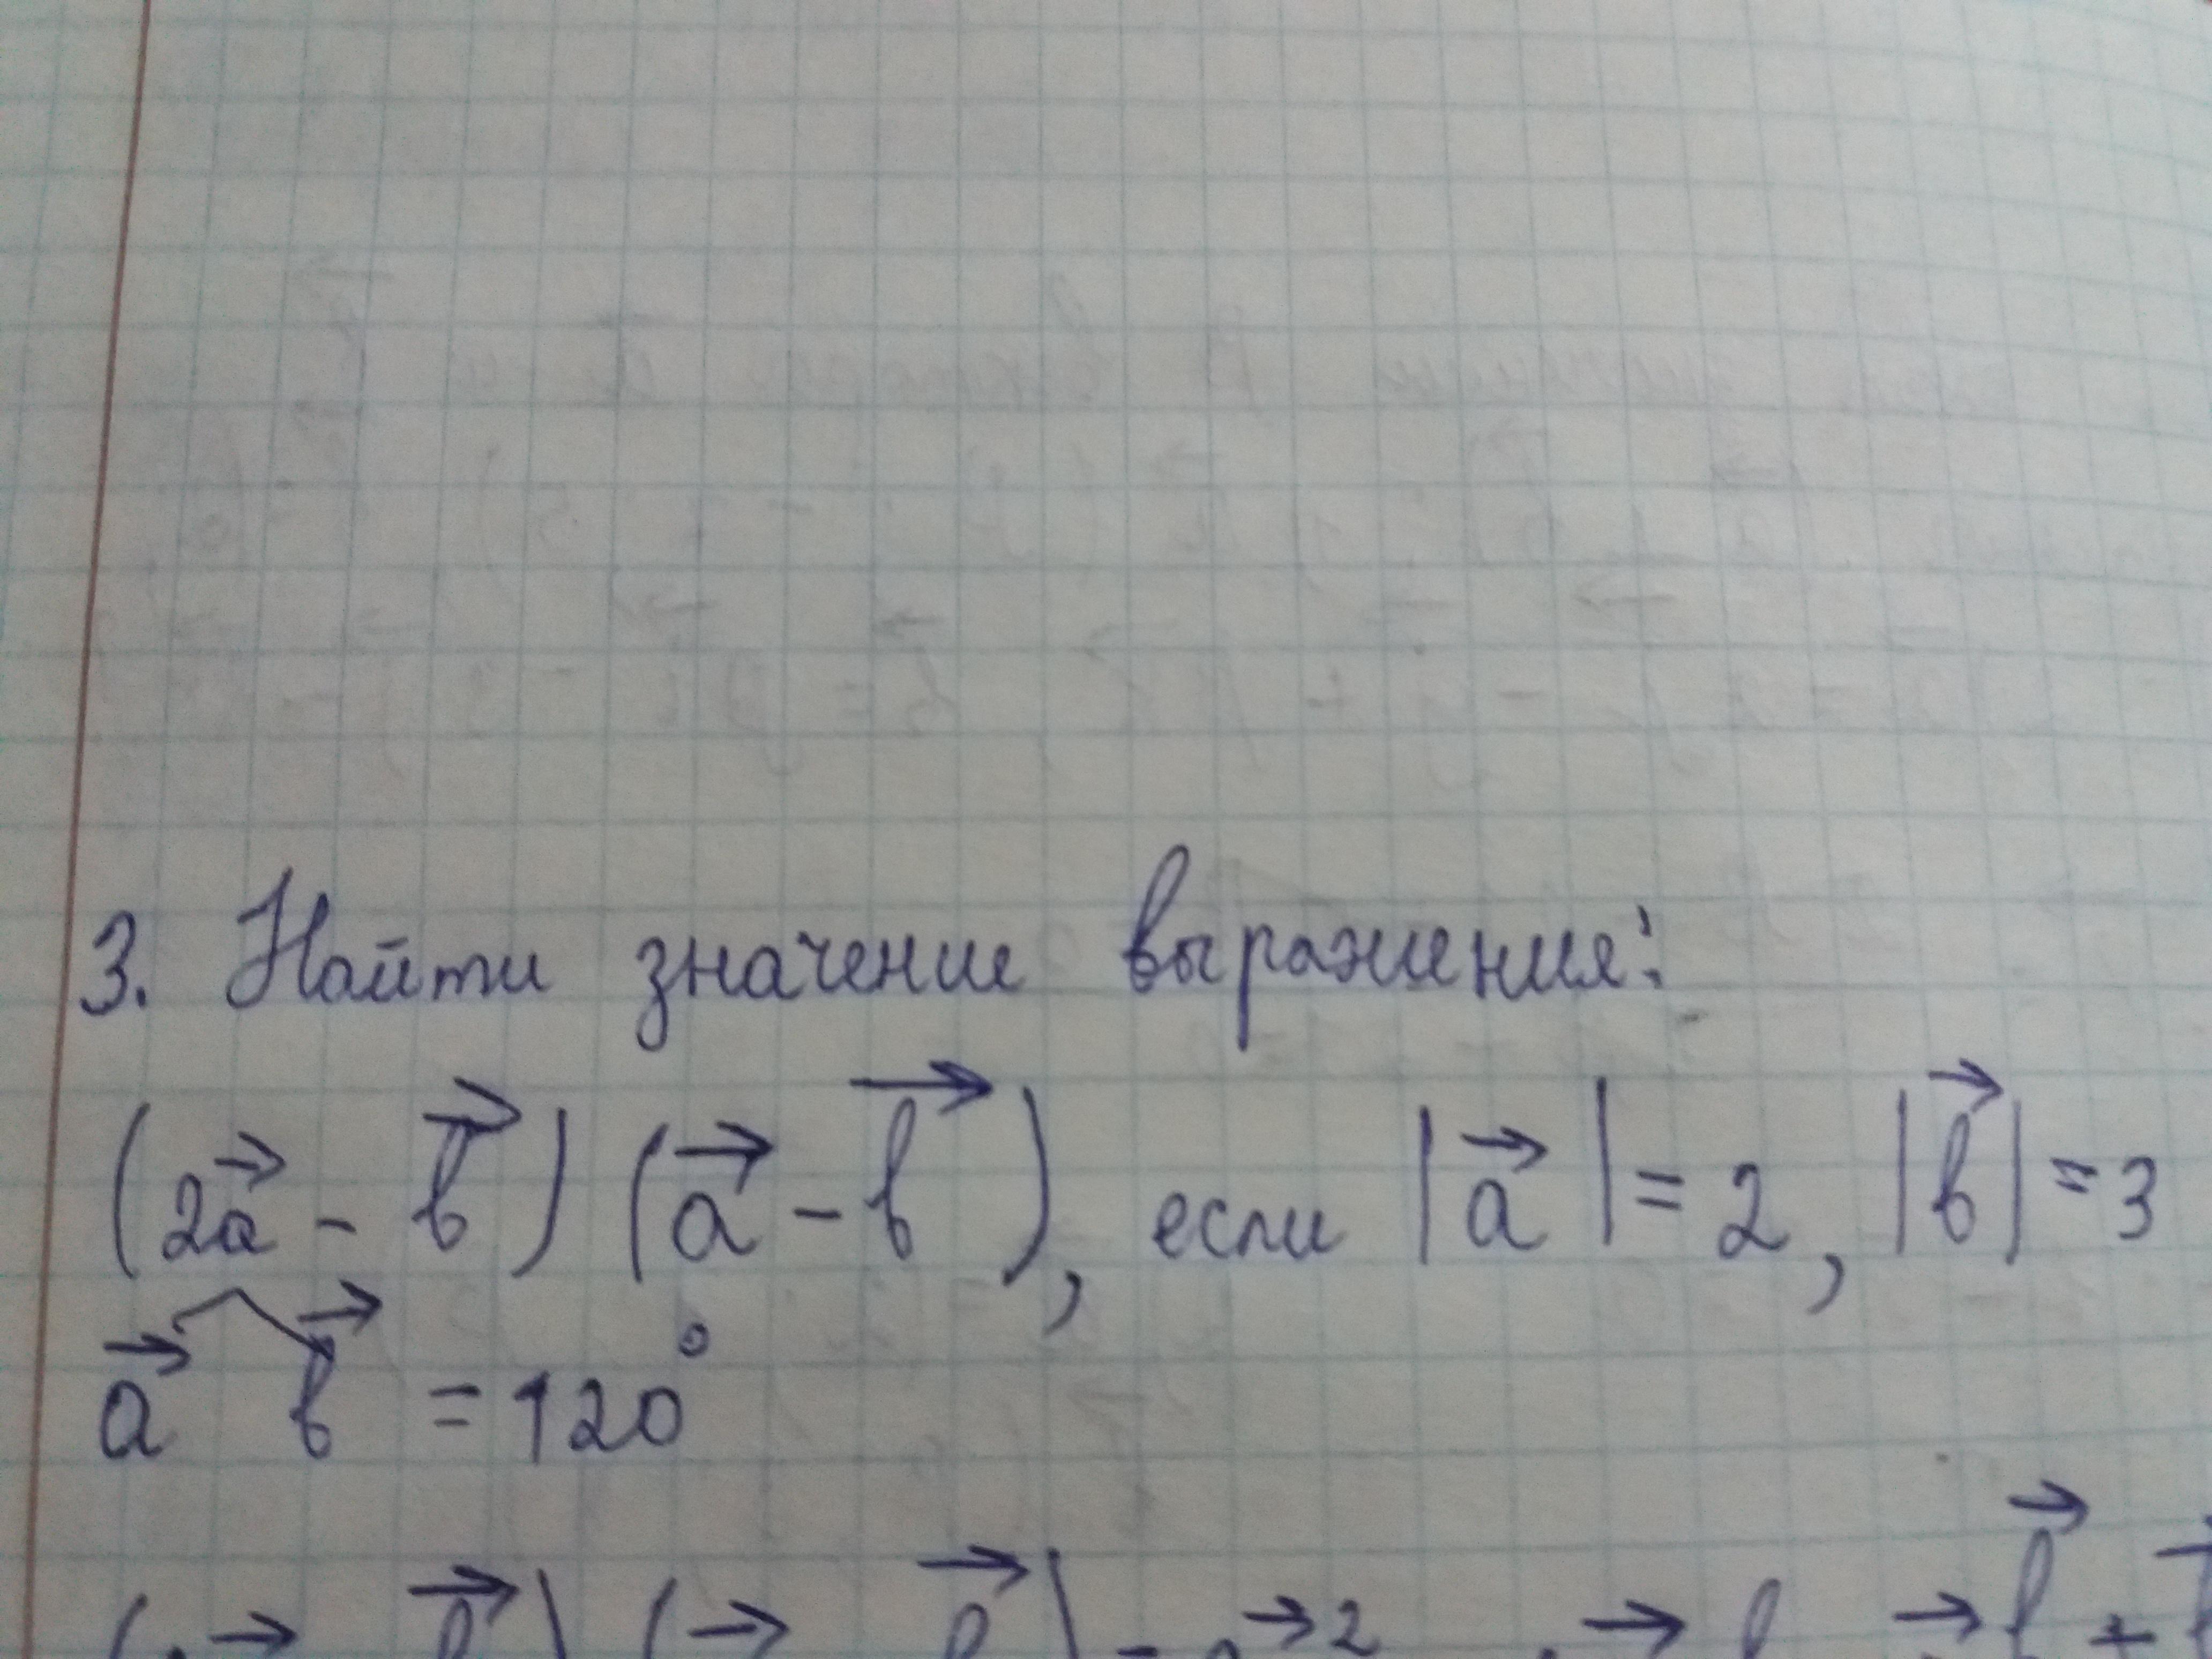 3. Найти значение выражения:
(2a⃗ - b⃗) (a⃗ - b⃗), если |a⃗| = 2, |b⃗| = 3
a⃗ ^ b⃗ = 120°